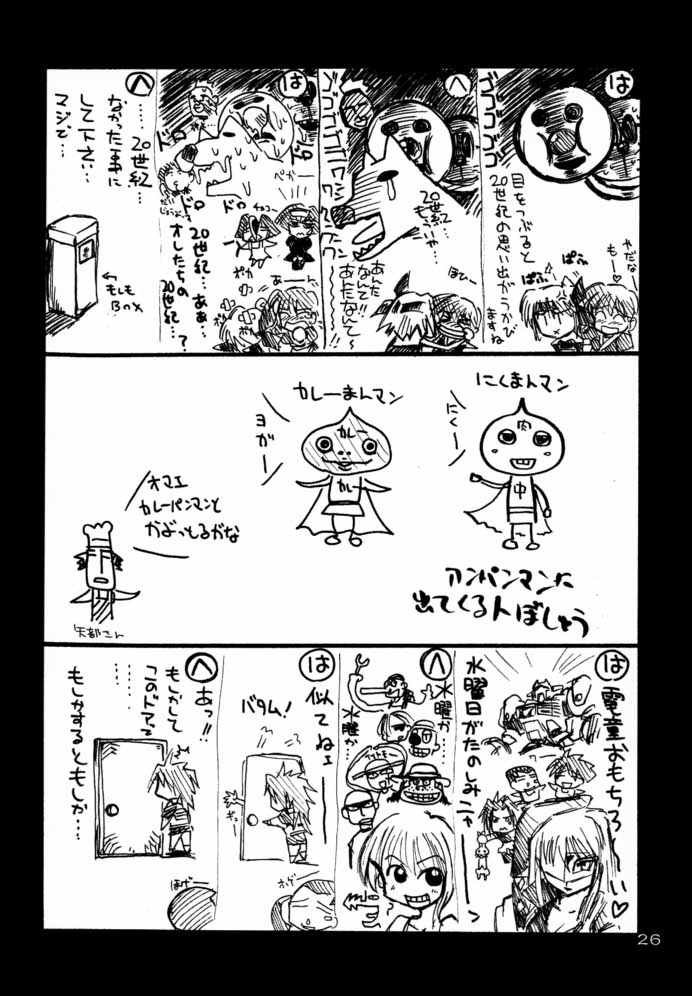 は
ゴゴゴゴゴ
目をつぶると
20世紀の思い出がうかび
ますね
やだな
もー♡
ぱふ
ぱふ
へ
ゴゴゴゴゴ
ワンワンワンワン
20世紀…
もういや…
あんた
なんて!!
あんたなんて〜
ほひー
は
ドロ
ドロ
ドロ
ドロ
ぺかー
チュコー
ポカ
ポカ
あーん
20世紀…ああ…
オレたちの
20世紀…?
へ
……20世紀…
なかった事に
して下さい…
マジで…
←もしも
Box
にくまんマン
にくー
肉
中
カレーまんマン
ヨガー
カレー
カレー
オマエ
カレーパンマンと
かぶっとるがな
矢部さん
アンパンマンに
出てくる人ぼしゅう
は
電童おもちろーい♡
水曜日がたのしみニャーッ
へ
水曜か
水曜か
は
似てねェ
バタム!
ギュー
ホゲー
へ
あっ!!
もしかして
このドアっ
……
もしかするともしか…
ほげー
26